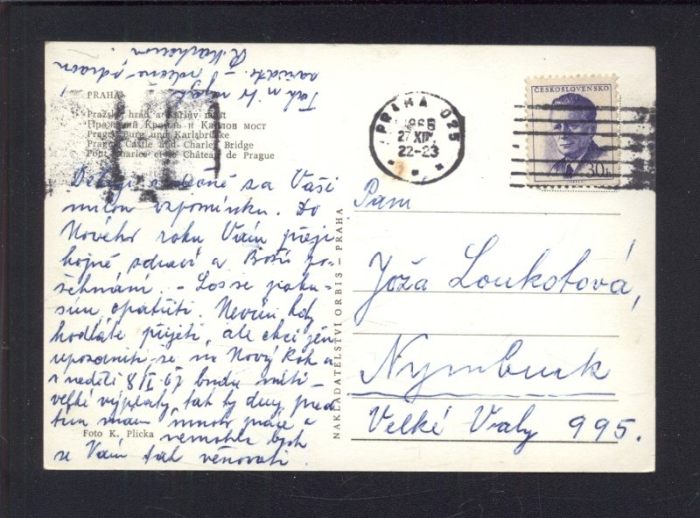 PRAHA
Pražský hrad a Karlův most
Пражский Кремль и Карлов мост
Prager Burg und Karlsbrücke
Prague Castle and Charles Bridge
Pont Charles et le Château de Prague
Děkuji za Vaši
milou vzpomínku. Do
Nového roku Vám přeji
hojně zdraví a Boží po-
žehnání. - Los se poku-
sím opatřiti. Nevím kdy
hodláte přijeti, ale chci jen
upozorniti se na Nový Rok a
v neděli 8/I 67 budu míti
velké výplaty, tak ty dny před
tím mám mnoho práce a
nemohla bych
se Vám tak věnovati.
Tak mi to
zařídíte. - Srdečně zdraví
Foto K. Plicka
NAKLADATELSTVÍ ORBIS – PRAHA
PRAHA 025
27.XII
22-23
ČESKOSLOVENSKO
30h
Paní
Joža Loukotová,
Nymburk
Velké Valy 995.